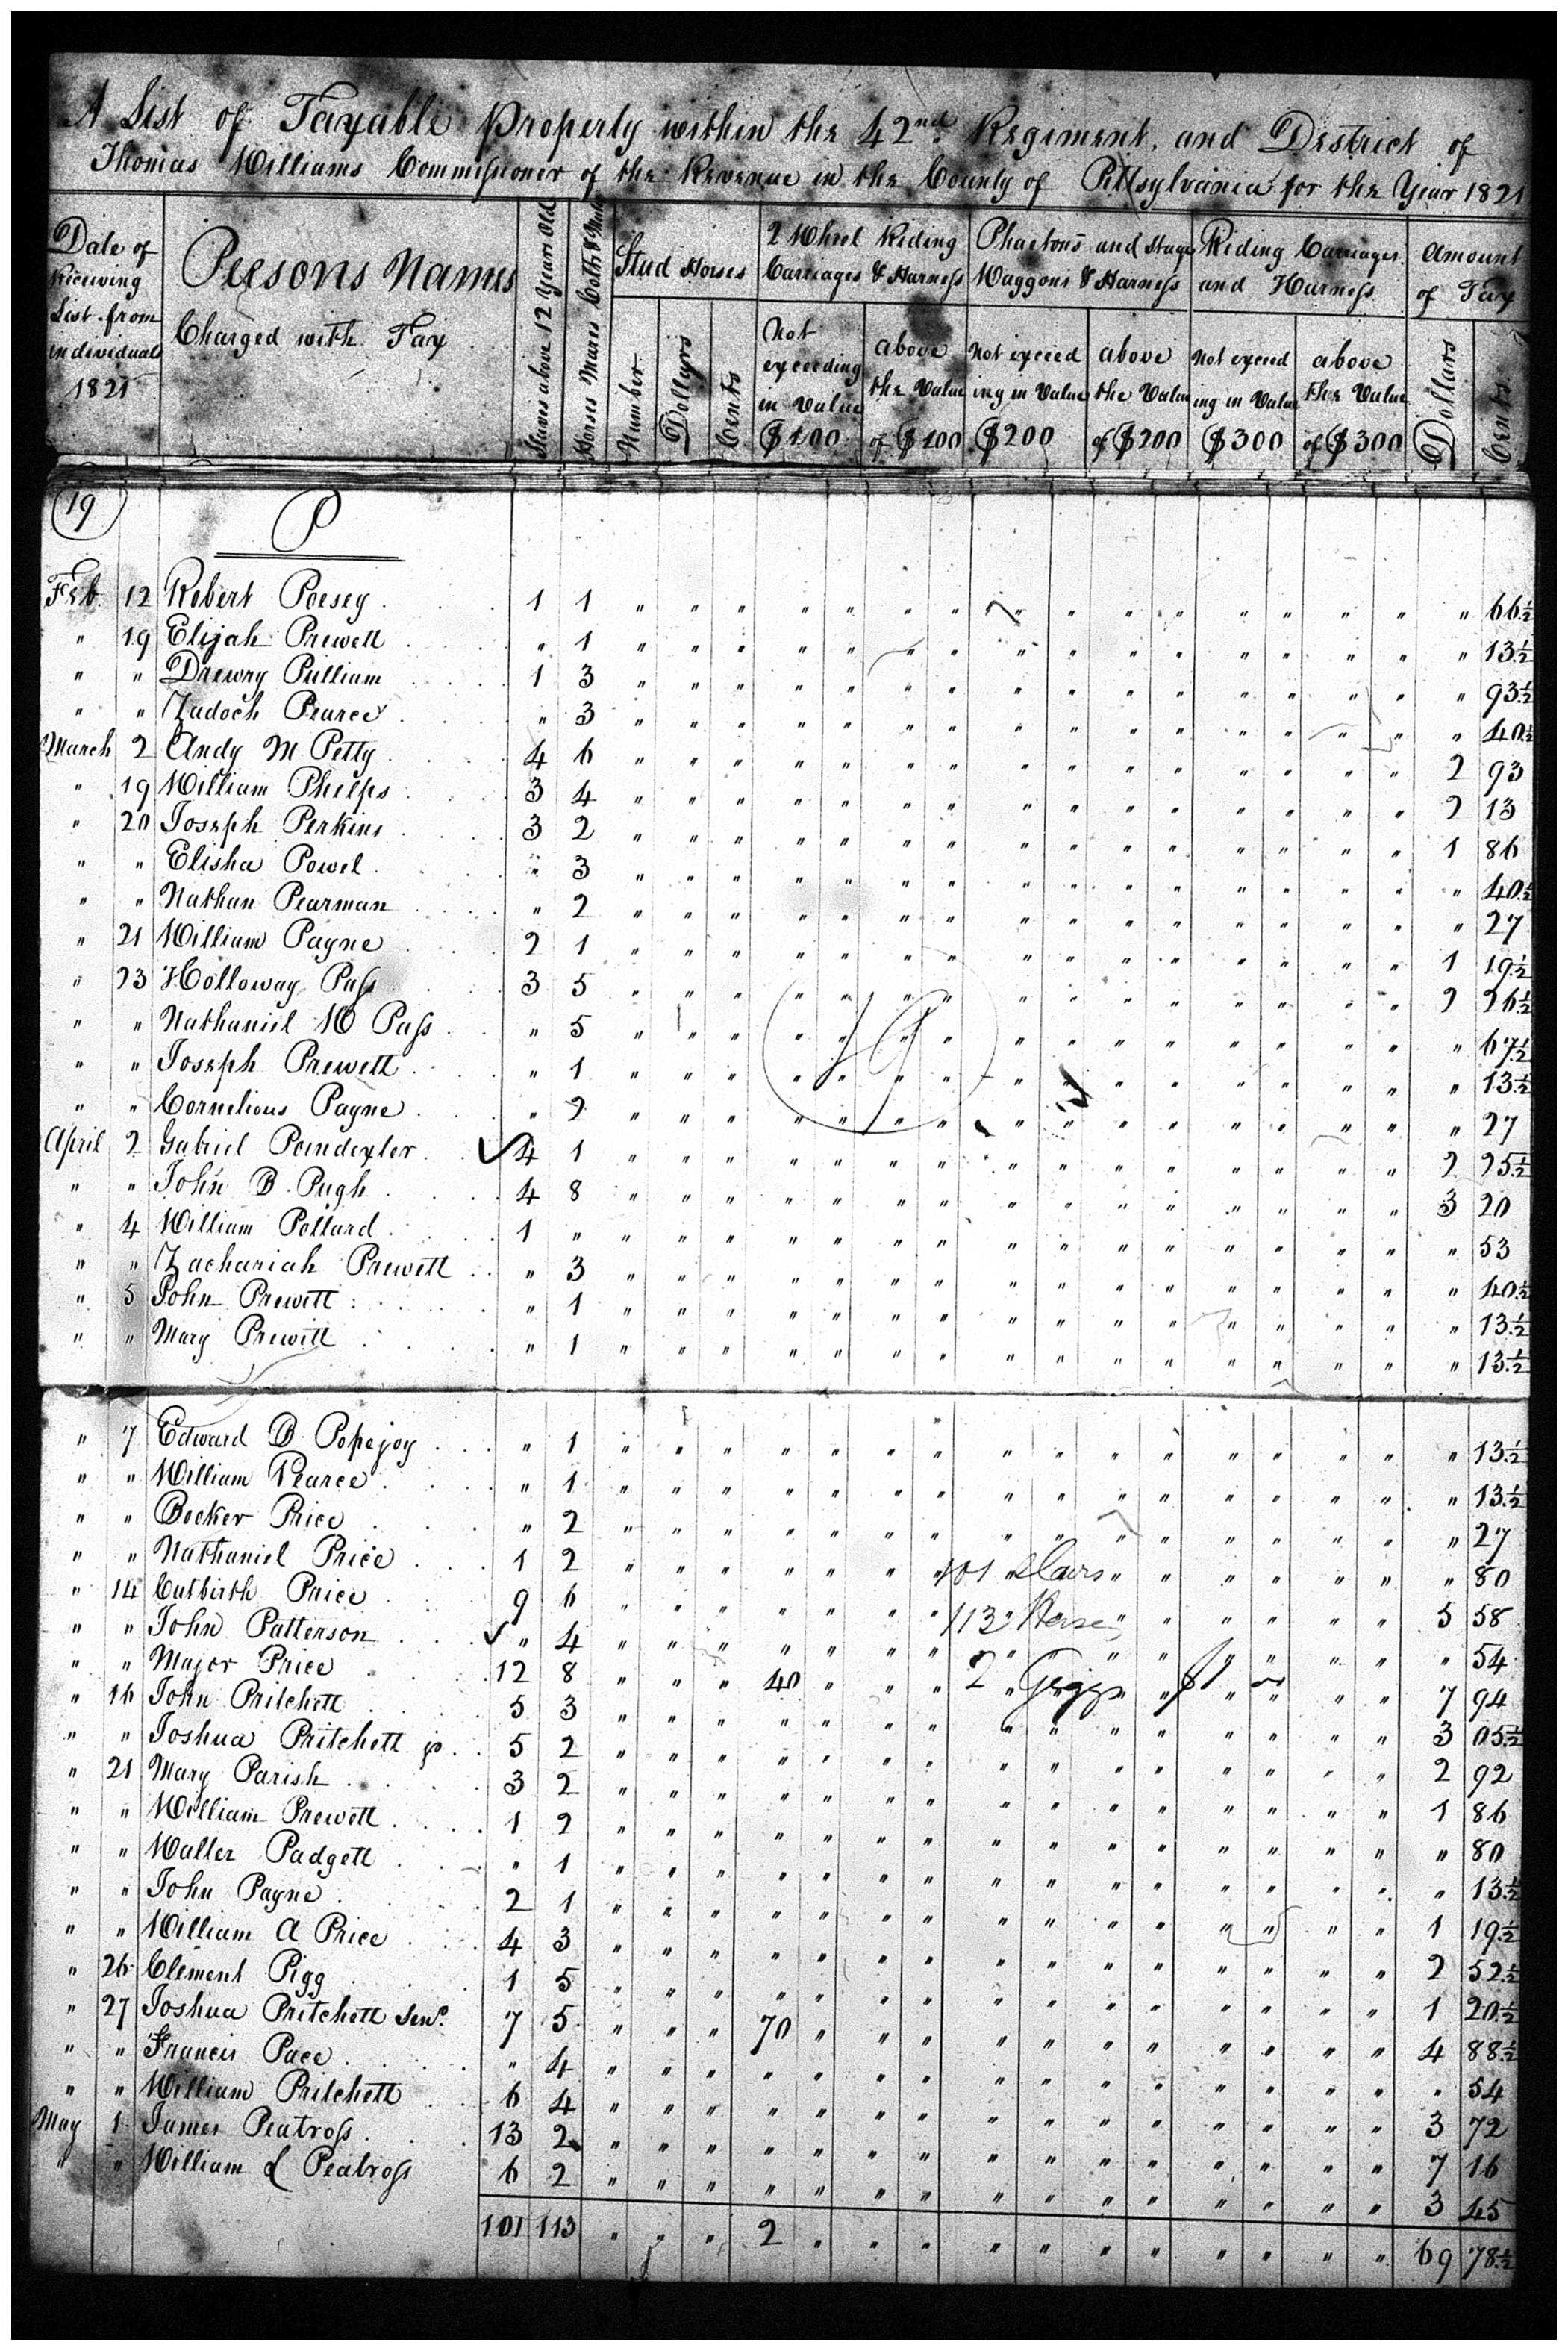 A List of Taxable Property within the 42nd Regiment, and District of
Thomas Williams Commissioner of the Revenue in the County of Pittsylvania for the Year 1821
Date of Receiving List from individuals 1821
Persons Names Charged with Tax
Slaves above 12 Years Old
Horses Mares Colts & Mules
Stud Horses
Number
Dollars
Cents
2 Wheel Riding Carriages & Harness
Not exceeding in Value $100
above the Value of $100
Phaetons and Stage Waggons & Harness
Not exceeding in Value $200
above the Value of $200
Riding Carriages and Harness
Not exceeding in Value $300
above the Value of $300
Amount of Tax
Dollars
Cents
19
P
Feb. 12 Robert Poesey 1 1 " " " " " " " " " " " " " " " " 66½
" 19 Elijah Prewett " 1 " " " " " " " " " " " " " " " " 13½
" " Drewry Pulliam 1 3 " " " " " " " " " " " " " " " " 93½
" " Zadoch Pearce " 3 " " " " " " " " " " " " " " " " 40½
March 2 Andy M Petty 4 6 " " " " " " " " " " " " " " " 2 93
" 19 William Phelps 3 4 " " " " " " " " " " " " " " " 2 13
" 20 Joseph Perkins 3 2 " " " " " " " " " " " " " " " 1 86
" " Elisha Powel " 3 " " " " " " " " " " " " " " " " 40½
" " Nathan Pearman " 2 " " " " " " " " " " " " " " " " 27
" 21 William Payne 2 1 " " " " " " " " " " " " " " " 1 19½
" 23 Holloway Pass 3 5 " " " " " " " " " " " " " " " 2 26½
" " Nathaniel W Pass " 5 " " " " " " " " " " " " " " " " 67½
19
" " Joseph Prewett " 1 " " " " " " " " " " " " " " " " 13½
" " Cornelious Payne " 2 " " " " " " " " " " " " " " " " 27
April 2 Gabriel Poindexter ✓ 4 1 " " " " " " " " " " " " " " " 2 25½
" " John B. Pugh 4 8 " " " " " " " " " " " " " " " 3 20
" 4 William Pollard 1 " " " " " " " " " " " " " " " " " 53
" " Zachariah Prewett " 3 " " " " " " " " " " " " " " " " 40½
" 5 John Prewitt " 1 " " " " " " " " " " " " " " " " 13½
" " Mary Prewitt " 1 " " " " " " " " " " " " " " " " 13½
" 7 Edward B Popejoy " 1 " " " " " " " " " " " " " " " " 13½
" " William Pearce " 1 " " " " " " " " " " " " " " " " 13½
" " Booker Price " 2 " " " " " " " " " " " " " " " " 27
" " Nathaniel Price 1 2 " " " " " " " " " " " " " " " " 80
101 slaves
" 14 Cutbirth Price 9 6 " " " " " " " " " " " " " " " 5 58
113 Horses
" " John Patterson ✓ " 4 " " " " " " " " " " " " " " " " 54
" " Major Price 12 8 " " " 40 " " " " " " " " " " " 7 94
2 Giggs $1
" 16 John Pritchett 5 3 " " " " " " " " " " " " " " " 3 05½
" " Joshua Pritchett jr. 5 2 " " " " " " " " " " " " " " " 2 92
" 21 Mary Parish 3 2 " " " " " " " " " " " " " " " 1 86
" " William Prewett 1 2 " " " " " " " " " " " " " " " " 80
" " Waller Padgett " 1 " " " " " " " " " " " " " " " " 13½
" " John Payne 2 1 " " " " " " " " " " " " " " " 1 19½
" " William A Price 4 3 " " " " " " " " " " " " " " " 2 52½
" 26 Clement Pigg 1 5 " " " " " " " " " " " " " " " 1 20½
" 27 Joshua Pritchett Senr. 7 5 " " " 70 " " " " " " " " " " " 4 88½
" " Francis Pace " 4 " " " " " " " " " " " " " " " " 54
" " William Pritchett 6 4 " " " " " " " " " " " " " " " 3 72
May 1 James Peatross 13 2 " " " " " " " " " " " " " " " 7 16
" " William L Peatross 6 2 " " " " " " " " " " " " " " " 3 45
101 113 " " " 2 " " " " " " " " " " " 69 78½